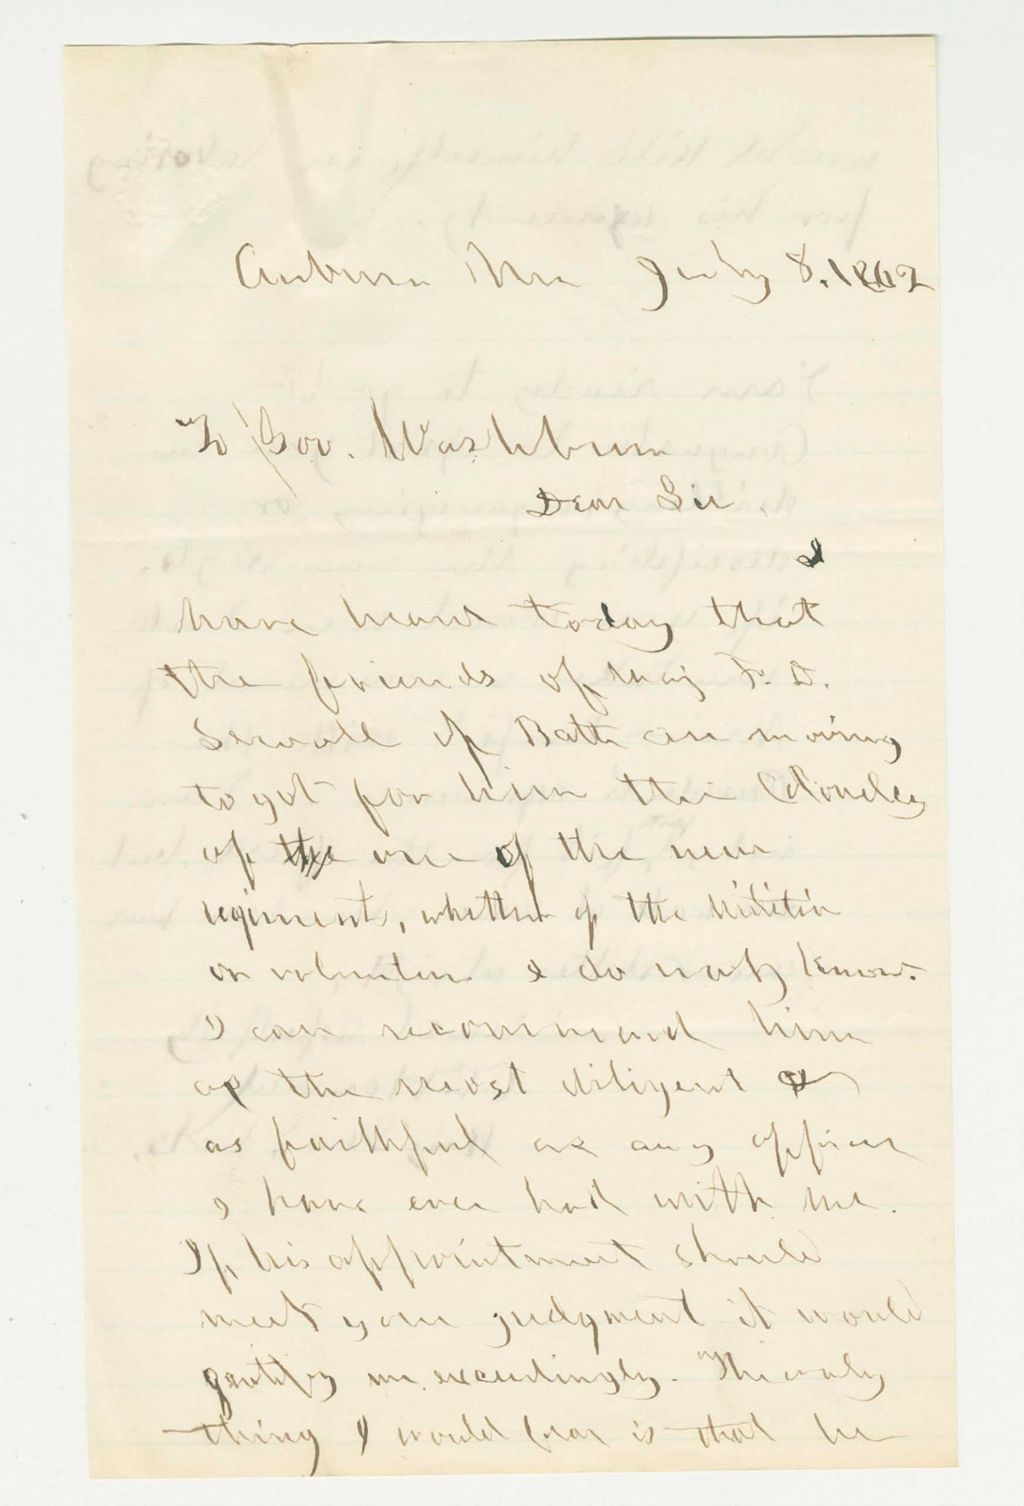 Auburn Me July 8. 1862
To Gov. Washburn
Dear Sir,
I
have heard today that
the friends of Maj F. D.
Sewall of Bath are moving
to get for him the Colonelcy
of the one of the new
regiments, whether of the Militia
or volunteers I do not know.
I can recommend him
as the most diligent &
as faithful as any officer
I have ever had with me.
If his appointment should
meet your judgment it would
gratify me exceedingly. The only
thing I would fear is that he